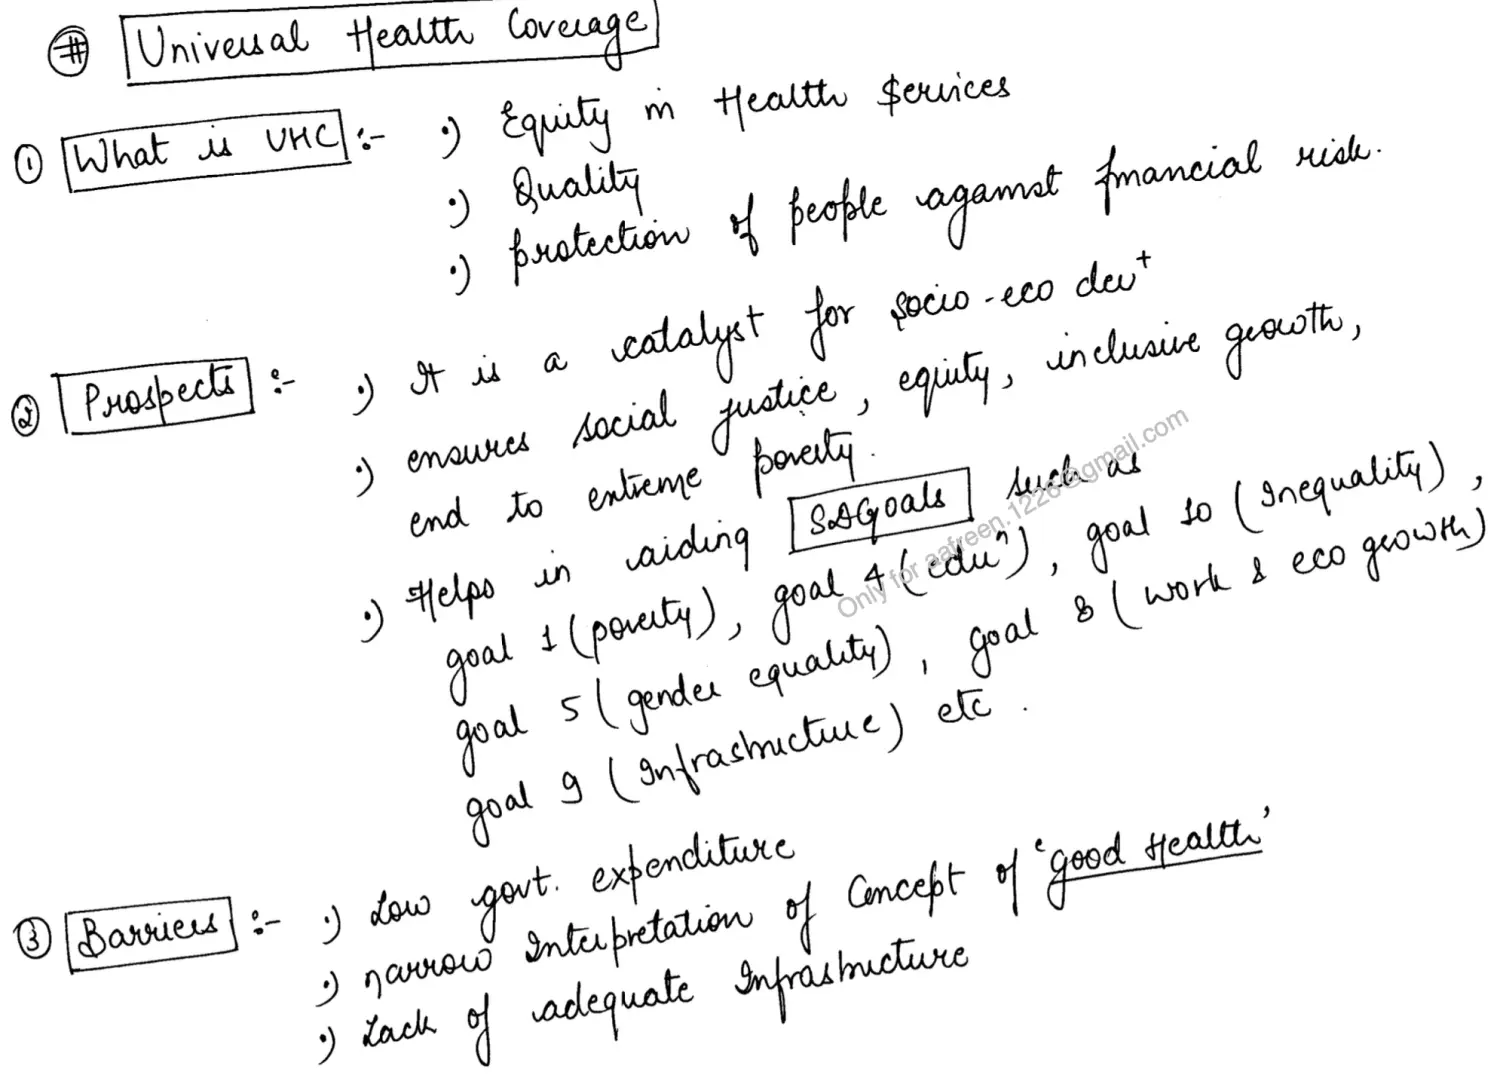 # Universal Health Coverage
① What is UHC :- •) Equity in Health Services
•) Quality
•) protection of people against financial risk.
② Prospects :- •) It is a catalyst for socio-eco dev+
•) ensures social justice, equity, inclusive growth,
end to extreme poverty.
•) Helps in aiding SDGoals such as
goal 1 (poverty), goal 4 (edun), goal 10 (Inequality),
goal 5 (gender equality), goal 8 (work & eco growth)
goal 9 (Infrastructure) etc.
③ Barriers :- •) Low govt. expenditure
•) narrow Interpretation of Concept of 'good Health'
•) Lack of adequate Infrastructure
Only for aafreen.1226@gmail.com